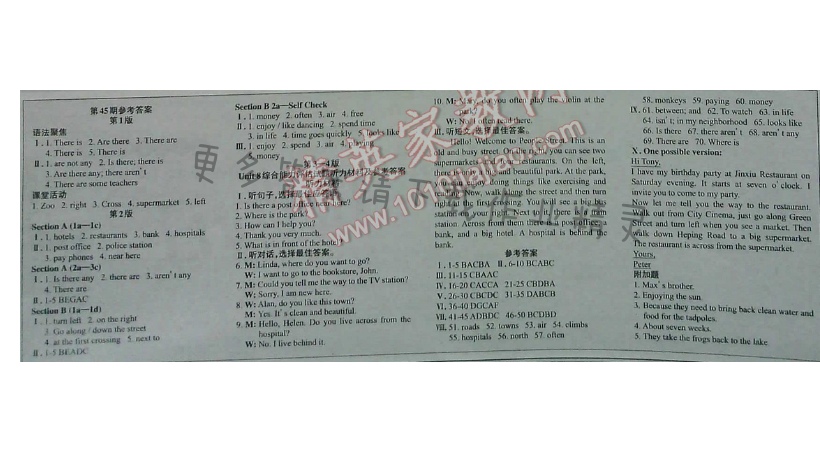 第45期参考答案
第1版
语法聚焦
Ⅰ. 1. There is 2. Are there 3. There are
4. There is 5. There is
Ⅱ. 1. are not any 2. Is there; there is
3. Are there any; there aren't
4. There are some teachers
课堂活动
1. Zoo 2. right 3. Cross 4. supermarket 5. left
第2版
Section A (1a—1c)
Ⅰ. 1. hotels 2. restaurants 3. bank 4. hospitals
Ⅱ. 1. post office 2. police station
3. pay phones 4. near here
Section A (2a—3c)
Ⅰ. 1. Is there any 2. there are 3. aren't any
4. There are
Ⅱ. 1-5 BEGAC
Section B (1a—1d)
Ⅰ. 1. turn left 2. on the right
3. Go along / down the street
4. at the first crossing 5. next to
Ⅱ. 1-5 BEADC
Section B 2a—Self Check
Ⅰ. 1. money 2. often 3. air 4. free
Ⅱ. 1. enjoy / like dancing 2. spend time
3. in life 4. time goes quickly 5. looks like
Ⅲ. 1. enjoy 2. spend 3. air 4. playing
5. money
版
Unit 8 综合能力 听力材料及参考答案
Ⅰ. 听句子,选择
1. Is there a post office near here?
2. Where is the park?
3. How can I help you?
4. Thank you very much.
5. What is in front of the hotel?
Ⅱ. 听对话,选择最佳答案。
6. M: Linda, where do you want to go?
W: I want to go to the bookstore, John.
7. M: Could you tell me the way to the TV station?
W: Sorry, I am new here.
8. W: Alan, do you like this town?
M: Yes. It's clean and beautiful.
9. M: Hello, Helen. Do you live across from the
hospital?
W: No. I live behind it.
10. M: Mary, do you often play the violin at the
park?
W: No. I often read there.
Ⅲ. 听短文,选择最佳答案。
Hello! Welcome to People Street. This is an
old and busy street. On the right, you can see two
supermarkets and restaurants. On the left,
there is a big and beautiful park. At the park,
you can enjoy doing things like exercising and
reading. Now, walk along the street and then turn
right at the first crossing. You can see a big bus
station on your right. Next to it, there is a train
station. Across from them there is a post office, a
bank, and a big hotel. A hospital is behind the
bank.
参考答案
Ⅰ. 1-5 BACBA Ⅱ. 6-10 BCABC
Ⅲ. 11-15 CBAAC
Ⅳ. 16-20 CACCA 21-25 CBDBA
Ⅴ. 26-30 CBCDC 31-35 DABCB
Ⅵ. 36-40 DGCAF
Ⅶ. 41-45 ADBDC 46-50 BCDBD
Ⅷ. 51. roads 52. towns 53. air 54. climbs
55. hospitals 56. north 57. often
58. monkeys 59. paying 60. money
Ⅸ. 61. between; and 62. To watch 63. in life
64. isn't; in my neighborhood 65. looks like
66. Is there 67. there aren't 68. aren't any
69. There are 70. Where is
Ⅹ. One possible version:
Hi Tony,
I have my birthday party at Jinxiu Restaurant on
Saturday evening. It starts at seven o'clock. I
invite you to come to my party.
Now let me tell you the way to the restaurant.
Walk out from City Cinema, just go along Green
Street and turn left when you see a market. Then
walk down Heping Road to a big supermarket.
The restaurant is across from the supermarket.
Yours,
Peter
附加题
1. Max's brother.
2. Enjoying the sun.
3. Because they need to bring back clean water and
food for the tadpoles.
4. About seven weeks.
5. They take the frogs back to the lake.
精英家教网
www.1010jiajiao.com